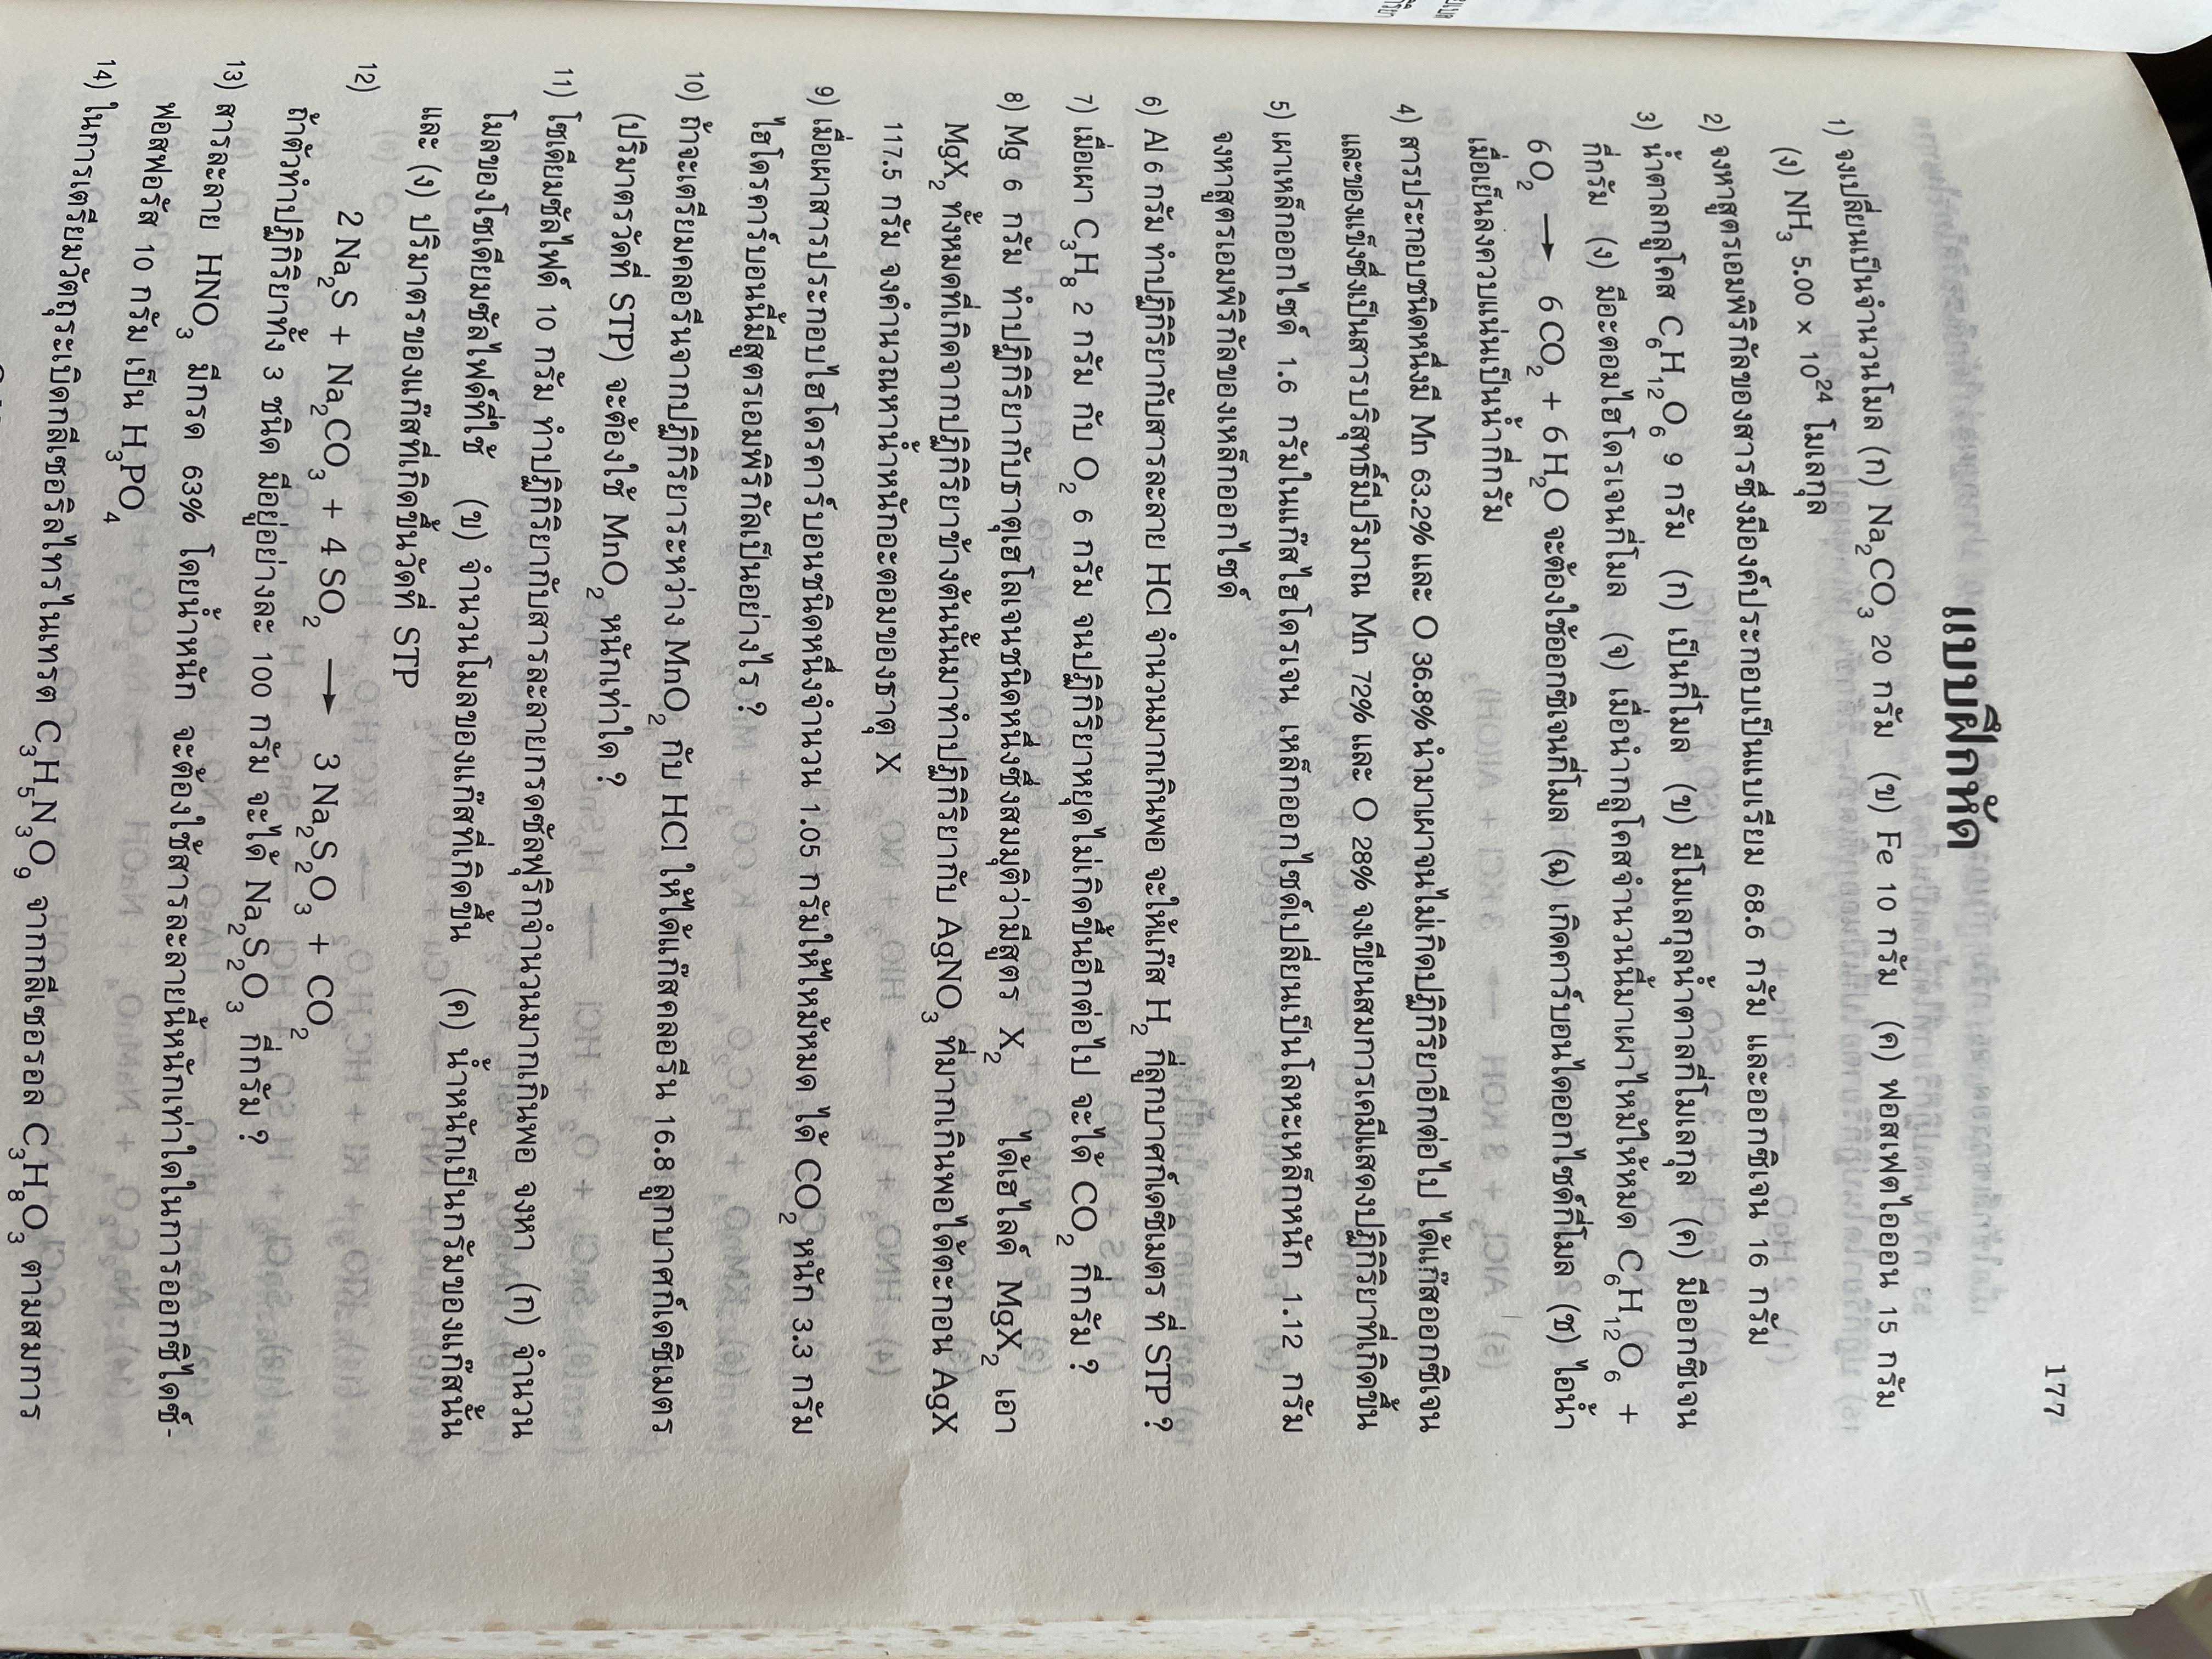 177
แบบฝึกหัด
1) จงเปลี่ยนเป็นจำนวนโมล (ก) Na₂CO₃ 20 กรัม (ข) Fe 10 กรัม (ค) ฟอสเฟตไอออน 15 กรัม
(ง) NH₃ 5.00 × 10²⁴ โมเลกุล
2) จงหาสูตรเอมพิริกัลของสารซึ่งมีองค์ประกอบเป็นแบเรียม 68.6 กรัม และออกซิเจน 16 กรัม
3) น้ำตาลกลูโคส C₆H₁₂O₆ 9 กรัม (ก) เป็นกี่โมล (ข) มีโมเลกุลน้ำตาลกี่โมเลกุล (ค) มีออกซิเจน
กี่กรัม (ง) มีอะตอมไฮโดรเจนกี่โมล (จ) เมื่อนำกลูโคสจำนวนนี้มาเผาไหม้ให้หมด C₆H₁₂O₆ +
6 O₂ ⟶ 6 CO₂ + 6 H₂O จะต้องใช้ออกซิเจนกี่โมล (ฉ) เกิดคาร์บอนไดออกไซด์กี่โมล (ช) ไอน้ำ
เมื่อเย็นลงควบแน่นเป็นน้ำกี่กรัม
4) สารประกอบชนิดหนึ่งมี Mn 63.2% และ O 36.8% นำมาเผาจนไม่เกิดปฏิกิริยาอีกต่อไป ได้แก๊สออกซิเจน
และของแข็งซึ่งเป็นสารบริสุทธิ์มีปริมาณ Mn 72% และ O 28% จงเขียนสมการเคมีแสดงปฏิกิริยาที่เกิดขึ้น
5) เผาเหล็กออกไซด์ 1.6 กรัมในแก๊สไฮโดรเจน เหล็กออกไซด์เปลี่ยนเป็นโลหะเหล็กหนัก 1.12 กรัม
จงหาสูตรเอมพิริกัลของเหล็กออกไซด์
6) Al 6 กรัม ทำปฏิกิริยากับสารละลาย HCl จำนวนมากเกินพอ จะให้แก๊ส H₂ กี่ลูกบาศก์เดซิเมตร ที่ STP ?
7) เมื่อเผา C₃H₈ 2 กรัม กับ O₂ 6 กรัม จนปฏิกิริยาหยุดไม่เกิดขึ้นอีกต่อไป จะได้ CO₂ กี่กรัม ?
8) Mg 6 กรัม ทำปฏิกิริยากับธาตุเฮโลเจนชนิดหนึ่งซึ่งสมมุติว่ามีสูตร X₂ ได้เฮไลด์ MgX₂ เอา
MgX₂ ทั้งหมดที่เกิดจากปฏิกิริยาข้างต้นนั้นมาทำปฏิกิริยากับ AgNO₃ ที่มากเกินพอได้ตะกอน AgX
117.5 กรัม จงคำนวณหาน้ำหนักอะตอมของธาตุ X
9) เมื่อเผาสารประกอบไฮโดรคาร์บอนชนิดหนึ่งจำนวน 1.05 กรัมให้ไหม้หมด ได้ CO₂ หนัก 3.3 กรัม
ไฮโดรคาร์บอนนี้มีสูตรเอมพิริกัลเป็นอย่างไร ?
10) ถ้าจะเตรียมคลอรีนจากปฏิกิริยาระหว่าง MnO₂ กับ HCl ให้ได้แก๊สคลอรีน 16.8 ลูกบาศก์เดซิเมตร
(ปริมาตรวัดที่ STP) จะต้องใช้ MnO₂ หนักเท่าใด ?
11) โซเดียมซัลไฟด์ 10 กรัม ทำปฏิกิริยากับสารละลายกรดซัลฟุริกจำนวนมากเกินพอ จงหา (ก) จำนวน
โมลของโซเดียมซัลไฟด์ที่ใช้ (ข) จำนวนโมลของแก๊สที่เกิดขึ้น (ค) น้ำหนักเป็นกรัมของแก๊สนั้น
และ (ง) ปริมาตรของแก๊สที่เกิดขึ้นวัดที่ STP
12) 2 Na₂S + Na₂CO₃ + 4 SO₂ ⟶ 3 Na₂S₂O₃ + CO₂
ถ้าตัวทำปฏิกิริยาทั้ง 3 ชนิด มีอยู่อย่างละ 100 กรัม จะได้ Na₂S₂O₃ กี่กรัม ?
13) สารละลาย HNO₃ มีกรด 63% โดยน้ำหนัก จะต้องใช้สารละลายนี้หนักเท่าใดในการออกซิไดซ์-
ฟอสฟอรัส 10 กรัม เป็น H₃PO₄
14) ในการเตรียมวัตถุระเบิดกลีเซอริลไทรไนเทรต C₃H₅N₃O₉ จากกลีเซอรอล C₃H₈O₃ ตามสมการ